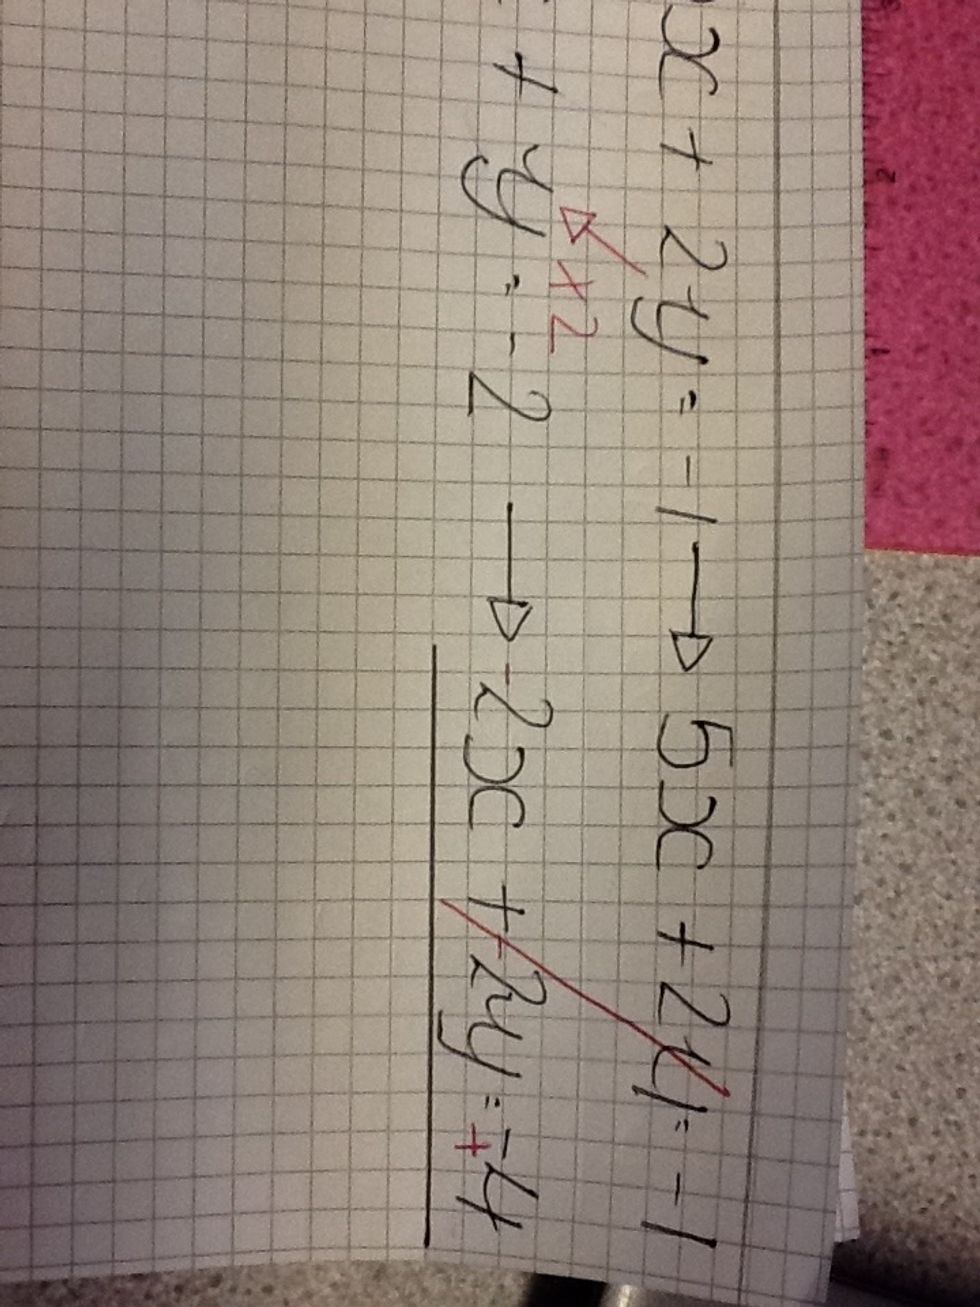 x + 2y = -1 → 5x + 2y = -1
×2
+ y = -2 → -2x + -2y = -4
+